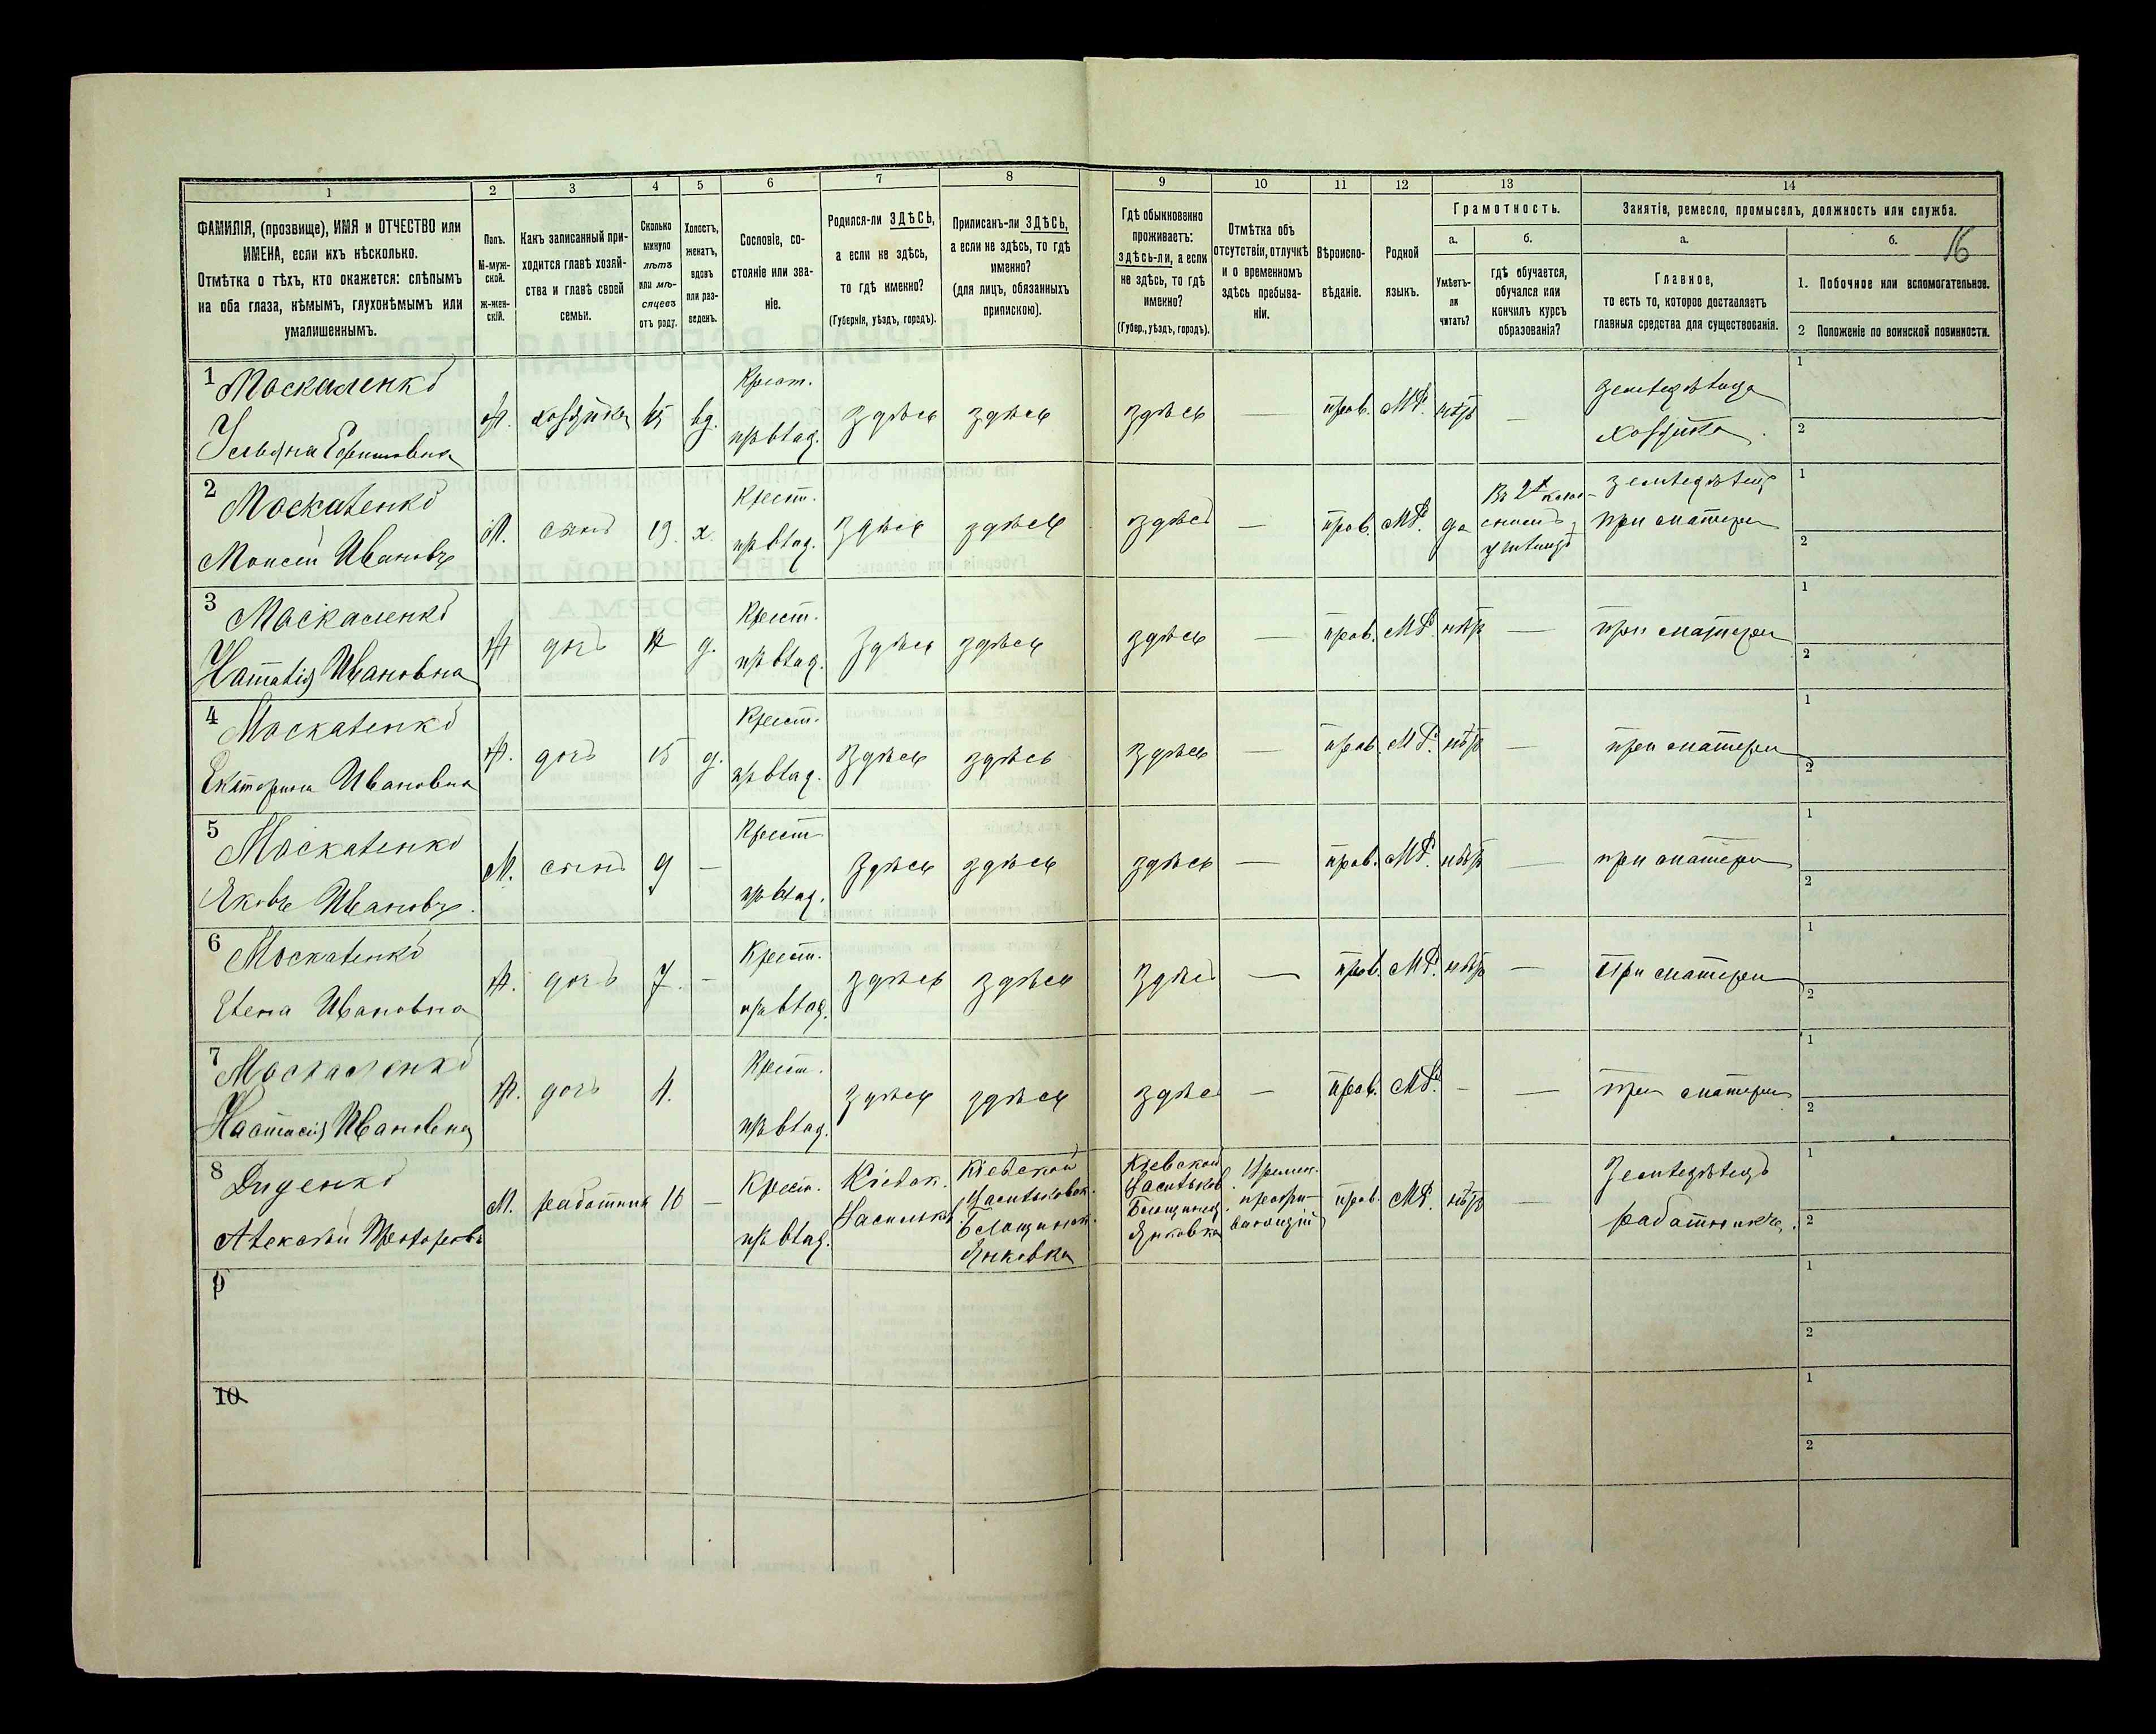 1 2 3 4 5 6 7 8 9 10 11 12 13 14
ФАМИЛІЯ, (прозвище), ИМЯ и ОТЧЕСТВО или
ИМЕНА, если ихъ нѣсколько.
Отмѣтка о тѣхъ, кто окажется: слѣпымъ
на оба глаза, нѣмымъ, глухонѣмымъ или
умалишеннымъ.
Полъ.
М-муж-
ской.
ж-жен-
скій.
Какъ записанный при-
ходится главѣ хозяй-
ства и главѣ своей
семьи.
Сколько
минуло
лѣтъ
или мѣ-
сяцевъ
отъ роду.
Холостъ,
женатъ,
вдовъ
или раз-
веденъ.
Сословіе, со-
стояніе или зва-
ніе.
Родился-ли ЗДѢСЬ,
а если не здѣсь,
то гдѣ именно?
(Губернія, уѣздъ, городъ).
Приписанъ-ли ЗДѢСЬ,
а если не здѣсь, то гдѣ
именно?
(для лицъ, обязанныхъ
припискою).
Гдѣ обыкновенно
проживаетъ:
здѣсь-ли, а если
не здѣсь, то гдѣ
именно?
(Губер., уѣздъ, городъ).
Отмѣтка объ
отсутствіи, отлучкѣ
и о временномъ
здѣсь пребыва-
ніи.
Вѣроиспо-
вѣданіе.
Родной
языкъ.
Грамотность.
а.
Умѣетъ-
ли
читать?
б.
гдѣ обучается,
обучался или
кончилъ курсъ
образованія?
Занятіе, ремесло, промыселъ, должность или служба.
а.
Главное,
то есть то, которое доставляетъ
главныя средства для существованія.
б.
16
1. Побочное или вспомогательное.
2 Положеніе по воинской повинности.
1 Москаленко
Ульяна Ефимовна
ж. хозяйка 45 вд.
Крест.
пр. влад.
здѣсь здѣсь здѣсь прав. МР. нѣтъ —
земледѣлица
хозяйка.
1
2
2 Москаленко
Моисей Ивановъ
М. сынъ 19. х.
Крест.
пр. влад.
здѣсь здѣсь здѣсь — прав. МР. да
училищѣ
земледѣлецъ
при матери
1
2
3 Москаленко
Наталія Ивановна
ж дочь д.
Крест.
пр. влад.
здѣсь здѣсь здѣсь — прав. МР. нѣтъ — при матери
1
2
4 Москаленко
Екатерина Ивановна
ж. дочь 15 д.
Крест.
пр. влад.
здѣсь здѣсь здѣсь — прав. МР. нѣтъ — при матери
1
2
5 Москаленко
Яковъ Ивановъ.
М. сынъ 9 —
Крест.
пр. влад.
здѣсь здѣсь здѣсь — прав. МР. нѣтъ — при матери
1
2
6 Москаленко
Елена Ивановна
ж. дочь 7. —
Крест.
пр. влад.
здѣсь здѣсь здѣсь — прав. МР. нѣтъ — При матери
1
2
7 Москаленко
Настасія Ивановна
ж. дочь 4.
Крест.
пр. влад.
здѣсь здѣсь здѣсь — прав. МР. - — при матери
1
2
8 Диденко
Алексѣй
М. работникъ 16 —
Крест.
пр. влад.
Кіевск.
Васильк.
Кіевской
Васильковск.
Янковка
Кіевской
Васильков.
Янковка
Времен.
прав. МР. нѣтъ —
Земледѣлецъ
работникъ.
1
2
9
1
2
10
1
2